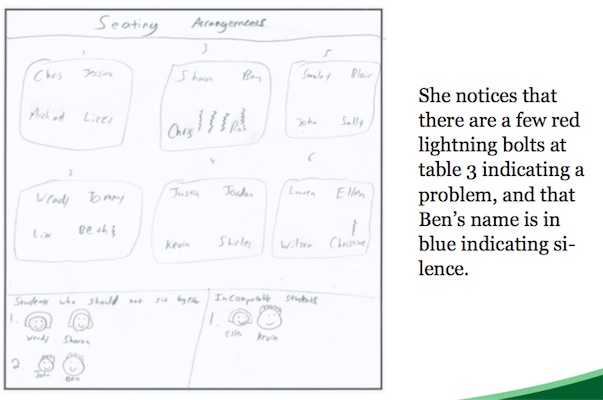 Seating Arrangements
1 3 5
Chris Jason
Michael
Shawn Ben
Chris Rob
Stanley Blair
John Sally
2 4 6
Wendy Tommy
Lisa Beth
Justin Jordan
Kevin Shirley
Lauren Ellen
Wilson Christine
Students who should not sit together
1.
Wendy Sharon
2.
John Ben
Incompatible students
1.
Ellen Kevin
She notices that
there are a few red
lightning bolts at
table 3 indicating a
problem, and that
Ben's name is in
blue indicating si-
lence.